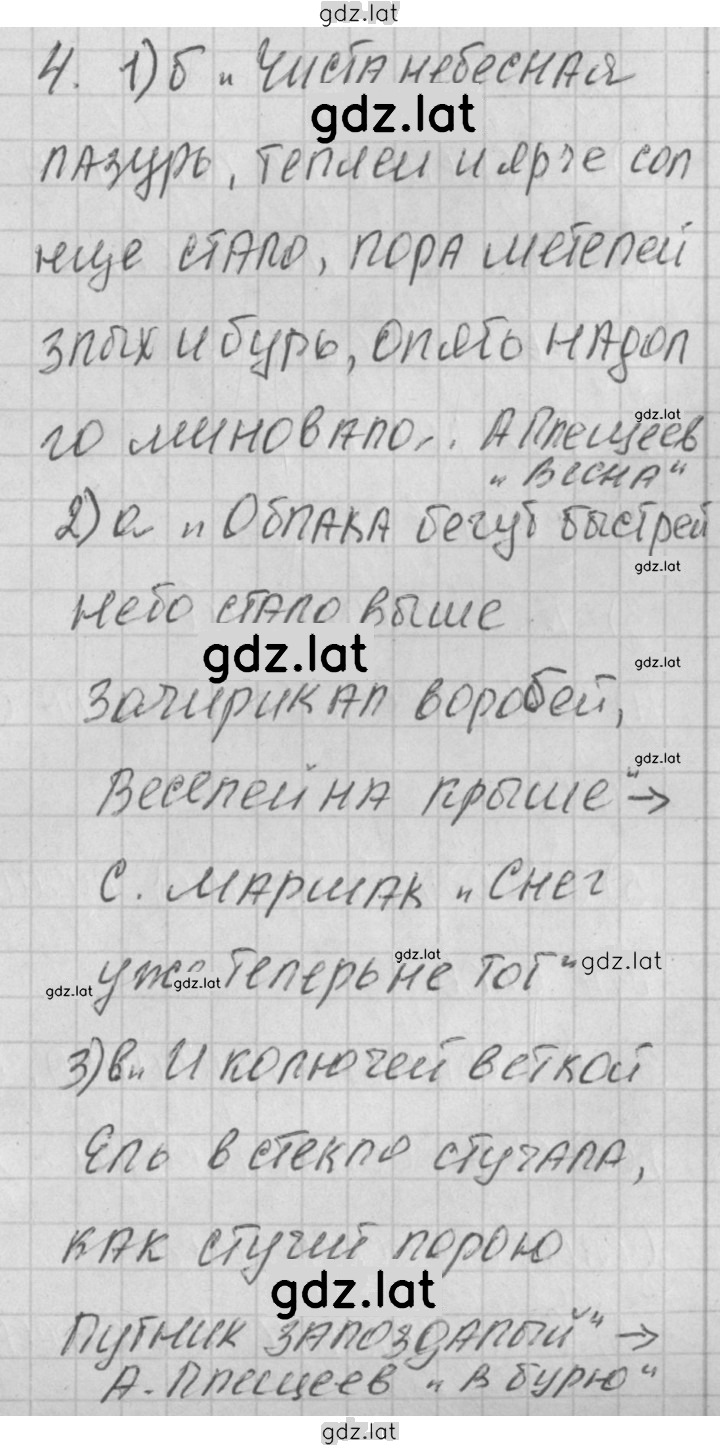 gdz.lat
4. 1) б „Чиста небесная
gdz.lat
лазурь, теплей и ярче сол
нце стало, пора метелей
злых и бурь, опять надол
gdz.lat
го миновало... А Плещеев
„Весна“
2) а „Облака бегут быстрей
gdz.lat
небо стало выше
gdz.lat
gdz.lat
зачирикал воробей,
gdz.lat
Веселей на крыше“ →
С. Маршак „Снег
gdz.lat
уже теперь не тот“ gdz.lat
gdz.lat gdz.lat
3) в „И колючей веткой
Ель в стекло стучала,
как стучит порою
gdz.lat
Путник запоздалый“ →
А. Плещеев „В бурю“
gdz.lat